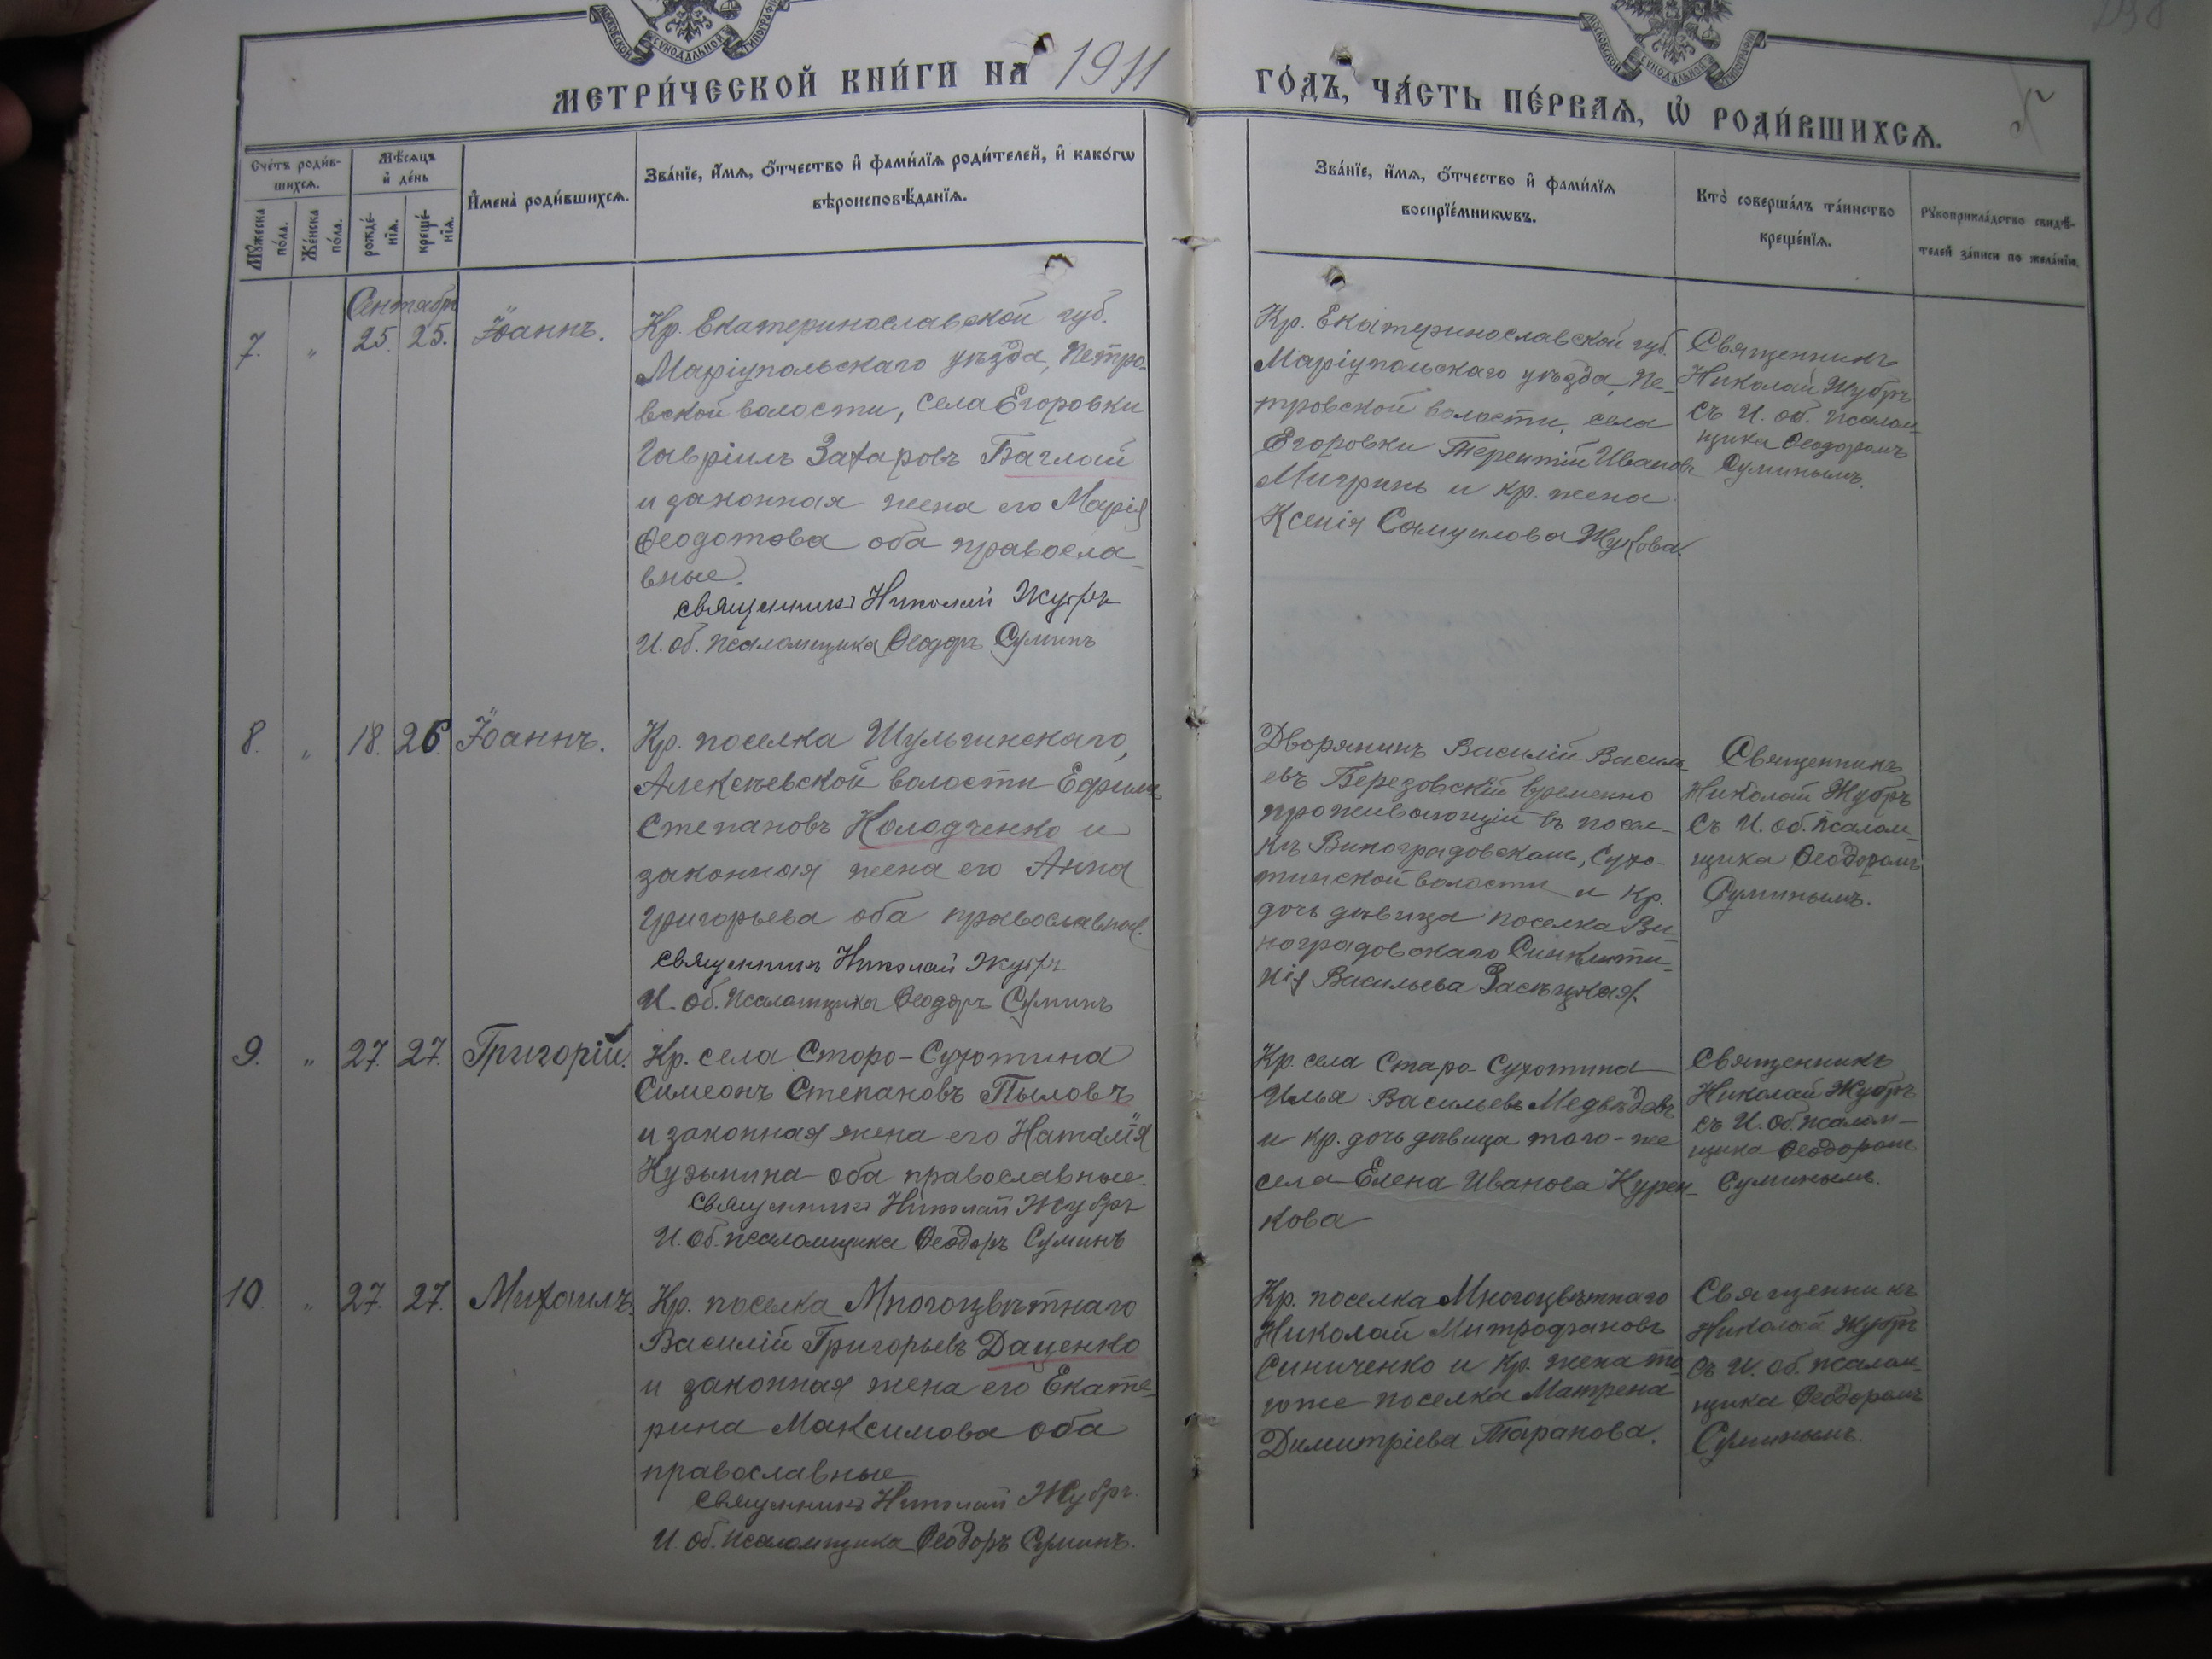 МОСКОВСКОЙ СѴНОДАЛЬНОЙ ТИПОГРАФІИ
МОСКОВСКОЙ СѴНОДАЛЬНОЙ ТИПОГРАФІИ
МЕТРИ́ЧЕСКОЙ КНИ́ГИ НА 1911
ГО́ДЪ, ЧА́СТЬ ПЕ́РВАѦ, Ѡ҆ РОДИ́ВШИХСѦ.
Сче́тъ роди́в-
шихсѧ.
Мꙋ́жеска по́ла.
Же́нска по́ла.
Мѣ́сѧцъ
и҆ де́нь
рожде́-
нїѧ.
креще́-
нїѧ.
И҆мена̀ роди́вшихсѧ.
Зва́нїе, и҆́мѧ, ѻ҆́тчество и҆ фами́лїѧ роди́телей, и҆ како́гѡ
вѣроисповѣ́данїѧ.
Зва́нїе, и҆́мѧ, ѻ҆́тчество и҆ фами́лїѧ
воспрїе́мникѡвъ.
Кто̀ соверша́лъ та́инство
креще́нїѧ.
Рꙋкоприкла́дство свидѣ́-
телей за́писи по жела́нїю.
Сентябрь
7. " 25. 25. Іоаннъ.
Кр. Екатеринославской губ.
Маріупольскаго уѣзда, Петро-
вской волости, села Егоровки
Гавріилъ Захаровъ Баглай
и законная жена его Марія
Ѳеодотова оба правосла-
вные.
Священникъ Николай Жубръ
И. об. псаломщика Ѳеодоръ Суминъ
Кр. Екатеринославской губ.
Маріупольскаго уѣзда, Пе-
тровской волости, села
Егоровки Терентій Ивановъ
Мигринь и кр. жена
Ксенія Самуилова Жукова.
Священникъ
Николай Жубръ
съ И. об. псалом-
щика Ѳеодоромъ
Суминымъ.
8. " 18. 26. Іоаннъ.
Кр. поселка Шульгинскаго,
Алексѣевской волости Ефимъ
Степановъ Колодченко и
законная жена его Анна
Григорьева оба православные.
Священникъ Николай Жубръ
И. об. псаломщика Ѳеодоръ Суминъ
Дворянинъ Василій Василь-
евъ Березовскій временно
проживающій въ посел-
кѣ Виноградовскомъ, Сухо-
тинской волости и кр.
дочь дѣвица поселка Ви-
ноградовскаго Синклити-
кія Васильева Засѣцкая.
Священникъ
Николай Жубръ
съ И. об. псалом-
щика Ѳеодоромъ
Суминымъ.
9. " 27. 27. Григорій.
Кр. села Старо-Сухотина
Симеонъ Степановъ Пыловъ
и законная жена его Наталія
Кузьмина оба православные.
Священникъ Николай Жубръ
И. об. псаломщика Ѳеодоръ Суминъ
Кр. села Старо-Сухотина
Илья Васильевъ Медвѣдевъ
и кр. дочь дѣвица того-же
села Елена Иванова Курен-
кова
Священникъ
Николай Жубръ
съ И. об. псалом-
щика Ѳеодоромъ
Суминымъ.
10 " 27. 27. Михаилъ.
Кр. поселка Многоцвѣтнаго
Василій Григорьевъ Даценко
и законная жена его Екате-
рина Максимова оба
православные
Священникъ Николай Жубръ.
И. об. псаломщика Ѳеодоръ Суминъ.
Кр. поселка Многоцвѣтнаго
Николай Митрофановъ
Синиченко и кр. жена то-
гоже поселка Матрена
Димитріева Таранова.
Священникъ
Николай Жубръ
съ И. об. псалом-
щика Ѳеодоромъ
Суминымъ.